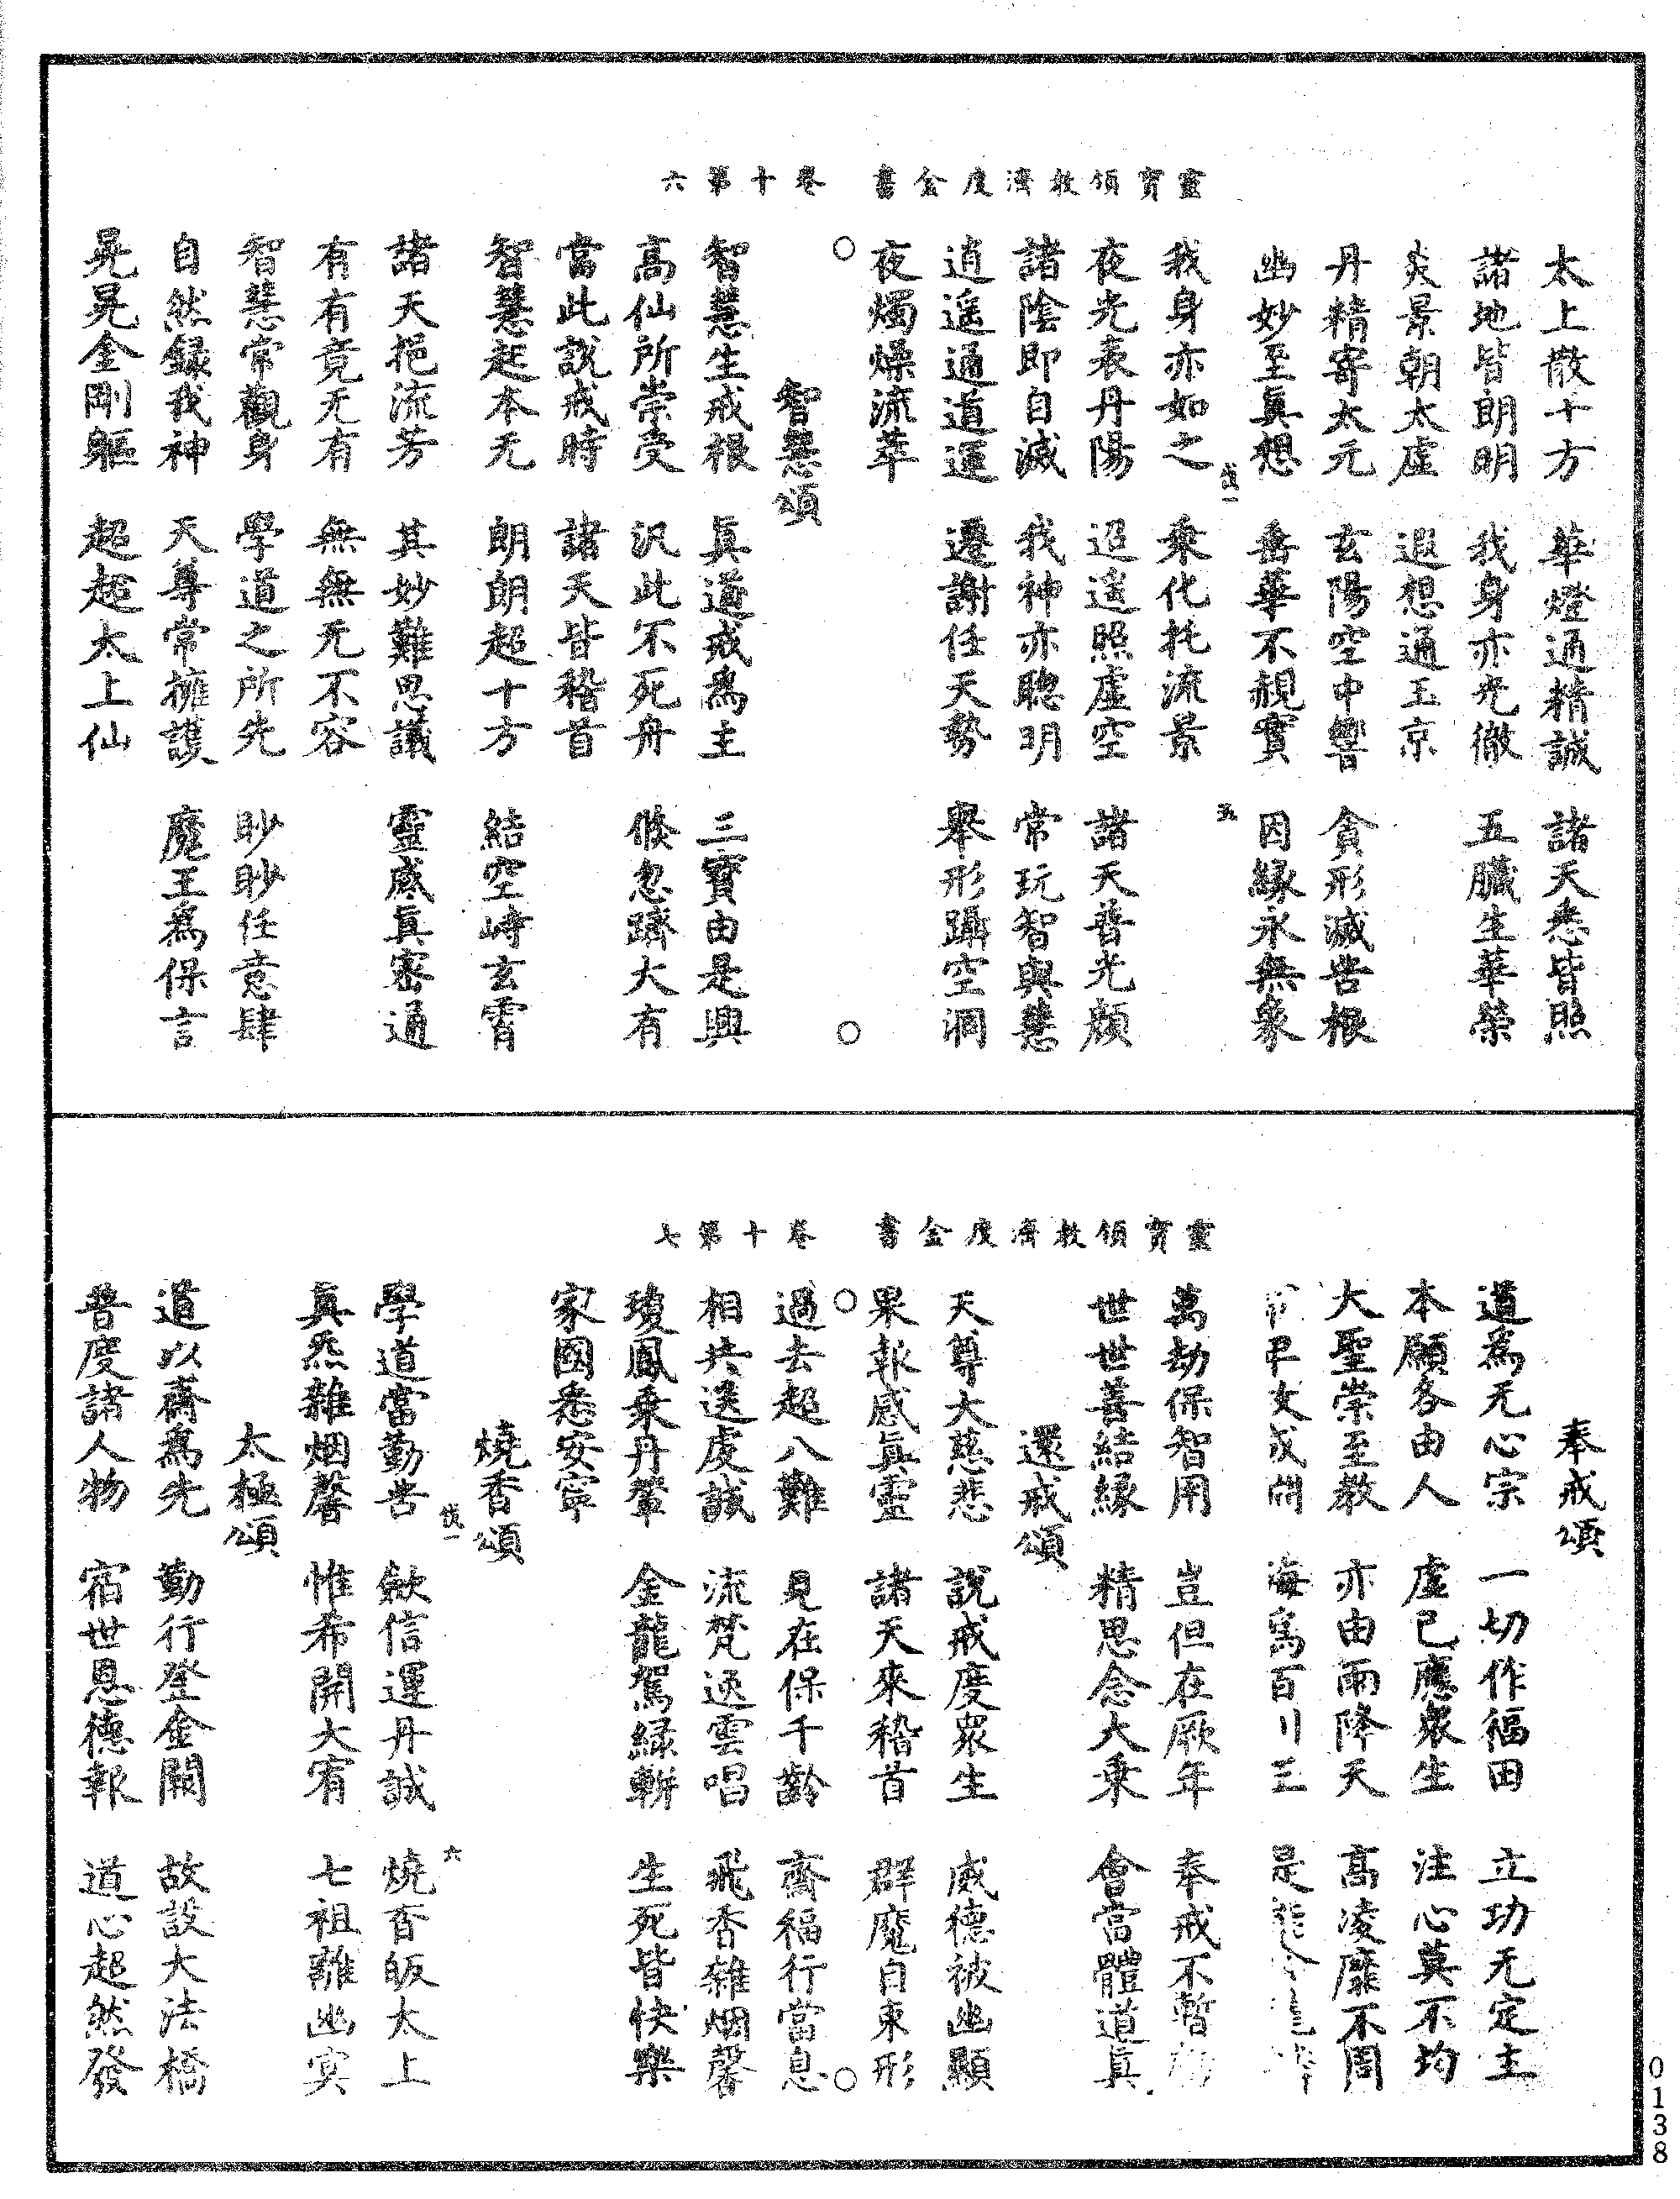 靈寶領教濟度金書 卷十第六
太上散十方 華燈通精誠 諸天悉皆照
諸地皆朗明 我身亦光徹 五臟生華榮
炎景朝太虛 遐想通玉京
丹精寄太元 玄陽空中響 貪形滅苦根
幽妙至真想 岳華不覩實 因緣永無象
伐一 五
我身亦如之 乘化托流景
夜光表丹陽 迢遙照虛空 諸天普光顔
諸陰即自滅 我神亦聰明 常玩智與慧
逍遙通道運 遷謝任天勢 舉形躡空洞
夜燭燥流萃
智慧頌
智慧生戒根 真道戒為主 三寶由是興
高仙所崇受 汎此不死舟 倐忽躋大有
當此說戒時 諸天皆稽首
智慧起本无 朗朗超十方 結空峙玄霄
諸天挹流芳 其妙難思議 靈感真密通
有有竟无有 無無无不容
智慧常觀身 學道之所先 眇眇任意肆
自然録我神 天尊常擁護 魔王為保言
晃晃金剛軀 超超太上仙
靈寶領教濟度金書 卷十第七
奉戒頌
道為无心宗 一切作福田 立功无定主
本願各由人 虛已應衆生 注心莫不均
大聖崇至教 亦由雨降天 高凌靡不周
海為百川三 是
萬劫保智用 豈但在厥年 奉戒不暫
世世善結緣 精思念大乘 會當體道真
還戒頌
天尊大慈悲 說戒度衆生 威德被幽顯
果報感真靈 諸天來稽首 群魔自束形
過去超八難 見在保千齡 齋福行當息
相共送虔誠 流梵逐雲唱 飛香雜烟馨
瓊鳳乘丹輦 金龍駕綠軿 生死皆快樂
家國悉安寧
燒香頌
伐一 六
學道當勤苦 歛信運丹誠 燒香皈太上
真炁雜烟馨 惟希開大宥 七祖離幽冥
太極頌
道以齋為先 勤行登金闕 故設大法橋
普度諸人物 宿世恩德報 道心超然發
0138